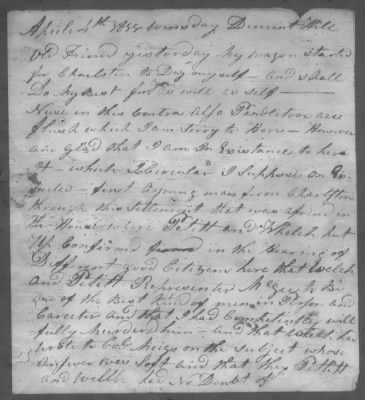 April 4th 1822 wensday Demint Hill
Old Friend yesterday My wagon Started
for Charlston to Day myself - and shall
Do My best for as will as self -
Nuse in this Contra also Pendleton are
flush which I am Sorry to Here - However
am glad that I am In Existance to here
it - which Is Circular I Suppose an
first a young man from Charlston
through this Settlement that was a frind in
the House where Petitt and Welch put
Up Confirmed in the Hearing of
Different good Citizens here that Welch
and Petitt Represented McGee to Be
one of the Best kind of men in Person and
Carecter and that I had Completely will
fully murdered him - and that Welch had
wrote to Col. Meigs on the subject whose
answer was Soft and that they Petitt
and Welch had No Doubt of